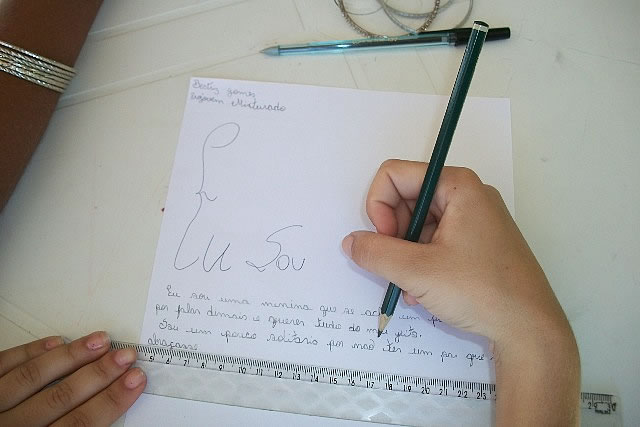 Eu Sou
Eu sou uma menina que se ach um p
por falar dimais e querer tudo do meu geto.
Sou um pouco solitario por não ter um pai que
abraçasse
5 6 7 8 9 10 11 12 13 14 15 16 17 18 19 20 21 22 23